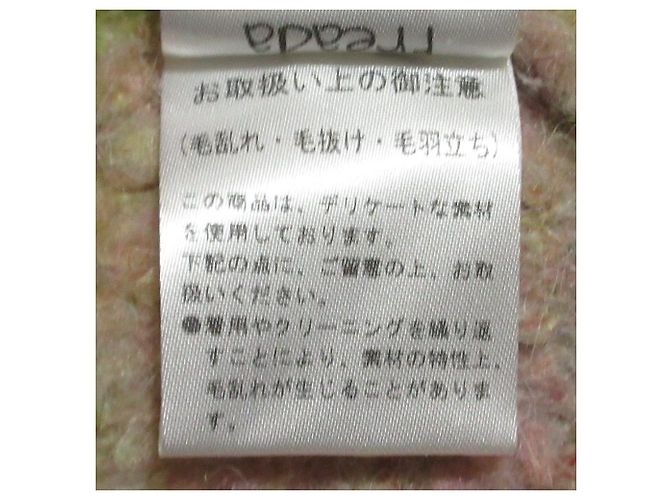 freada
お取扱い上の御注意
(毛乱れ・毛抜け・毛羽立ち)
この商品は、デリケートな素材
を使用しております。
下記の点に、ご留意の上、お取
扱いください。
●着用やクリーニングを繰り返
すことにより、素材の特性上、
毛乱れが生じることがありま
す。